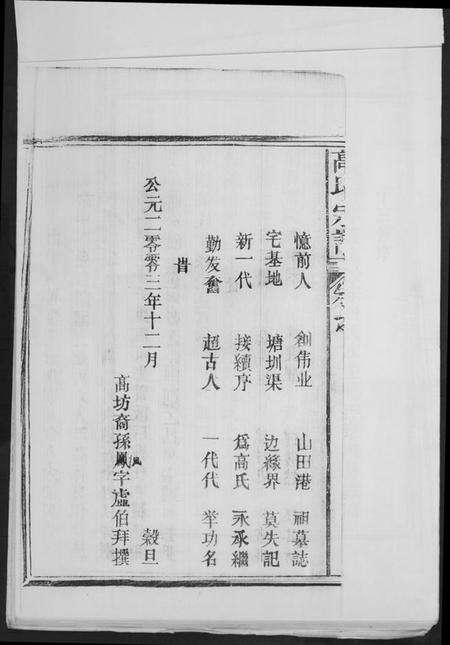 高氏宗譜
憶前人 創伟业 山田港 祖墓誌
宅基地 塘圳渠 边缘界 莫失記
新一代 接續序 爲高氏 永承繼
勤发奮 超古人 一代代 举功名
旹
公元二零零三年十二月 穀旦
高坊裔孫鳳字虛伯拜撰